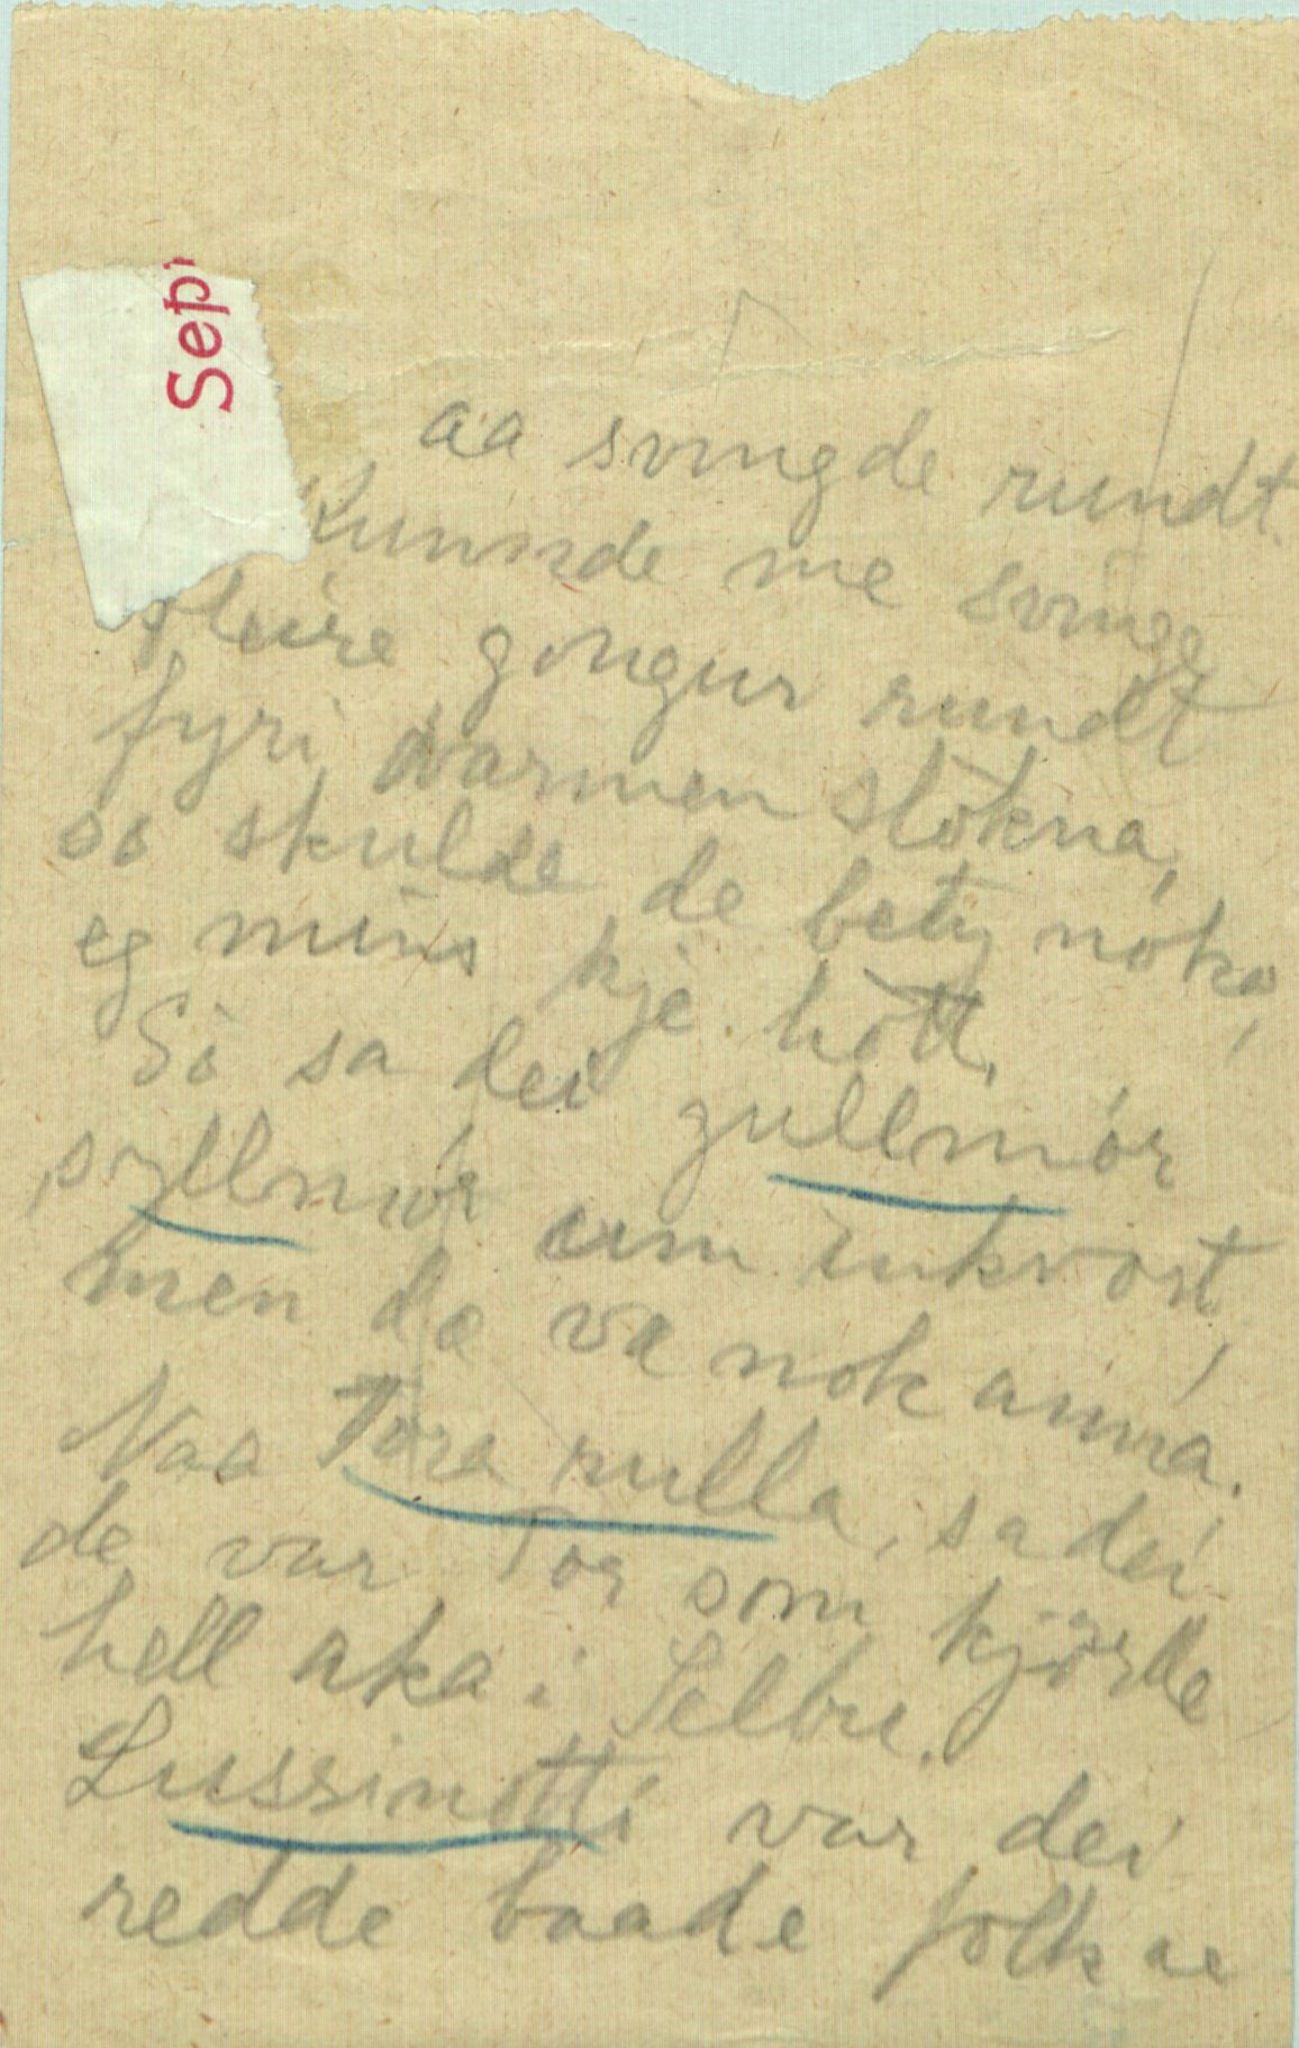 Sep
aa svingde rundt.
Kunnde me svinge
fleire gongur rundt
fyri varmen slokna,
so skulde de bety noko,
eg mins kje hott.
So sa dei gullmor
syllmor um inkvort,
men da va nok anna.
Naa Tora rulla, sa dei
de var Tor som kjörde
hell aka i Selbu.
Lussinotti var dei
redde baade folk ae